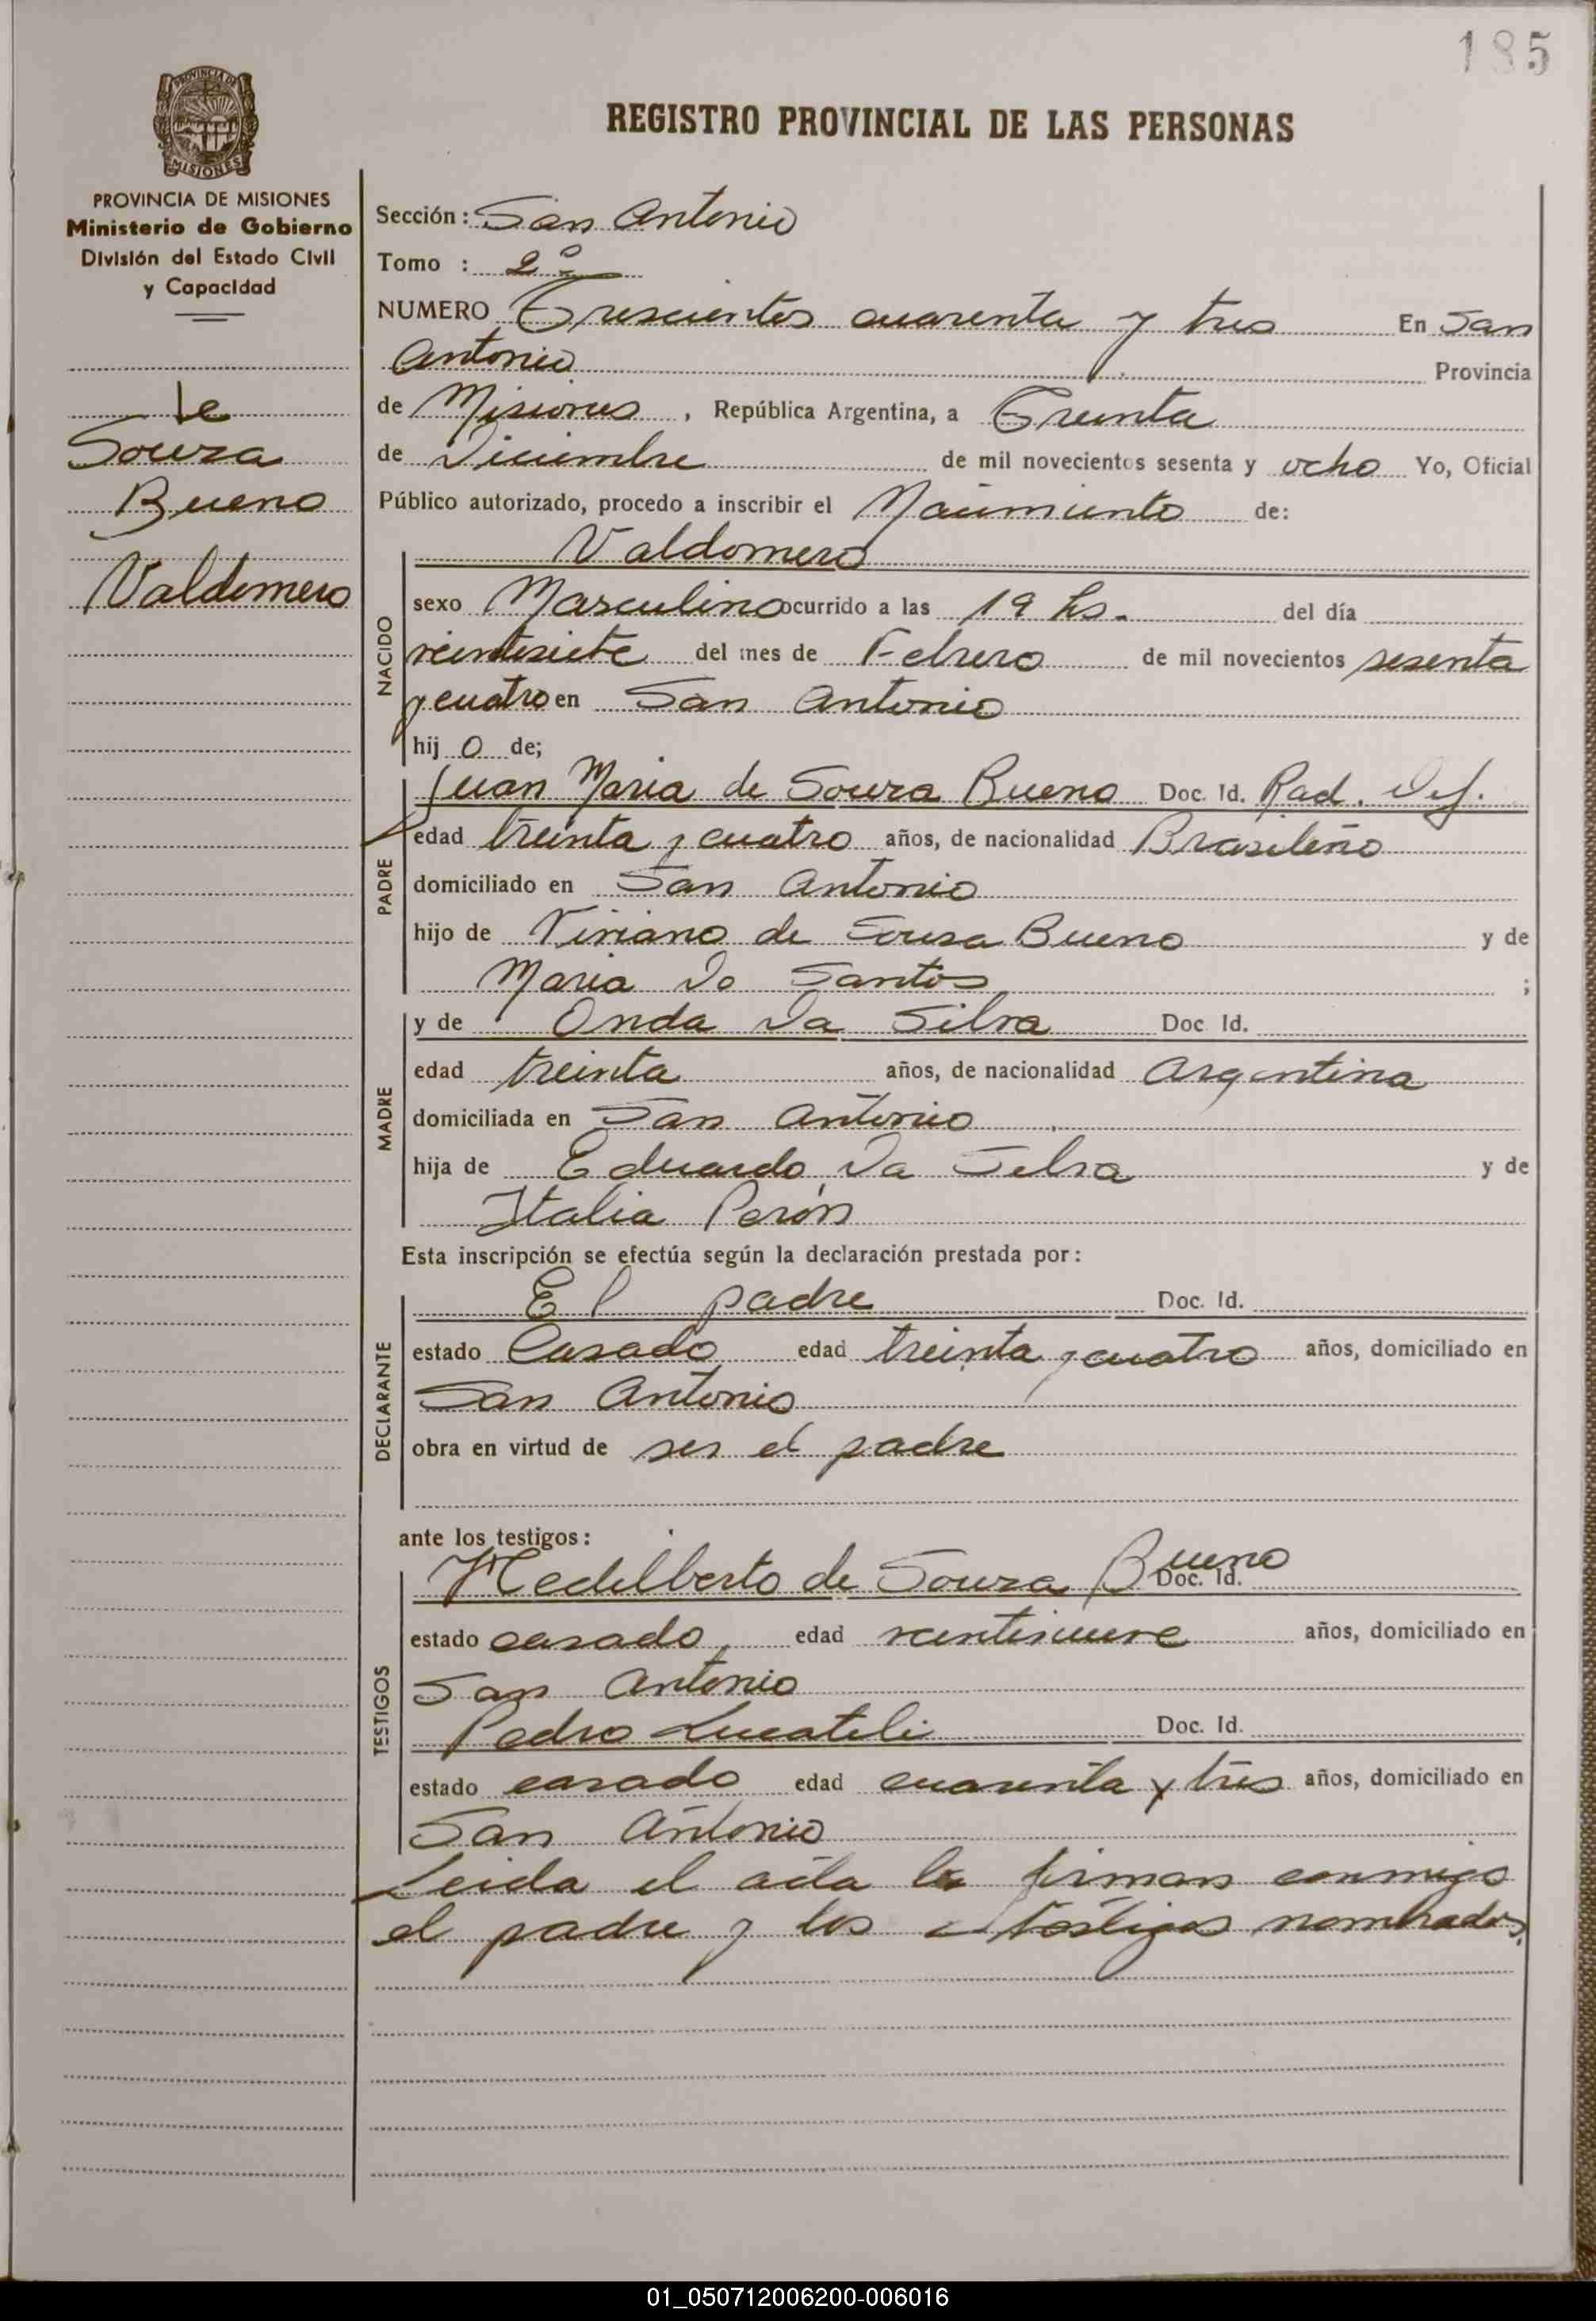 185
PROVINCIA DE
MISIONES
REGISTRO PROVINCIAL DE LAS PERSONAS
PROVINCIA DE MISIONES
Ministerio de Gobierno
División del Estado Civil
y Capacidad
de
Souza
Bueno
Valdomero
Sección: San Antonio
Tomo : 2º
NUMERO Trescientos cuarenta y tres En San
Antonio Provincia
de Misiones, República Argentina, a Treinta
de Diciembre de mil novecientos sesenta y ocho Yo, Oficial
Público autorizado, procedo a inscribir el Nacimiento de:
Valdomero
NACIDO
sexo Masculino ocurrido a las 19 hs. del día
veintisiete del mes de Febrero de mil novecientos sesenta
y cuatro en San Antonio
hij o de;
PADRE
Juan Maria de Souza Bueno Doc. Id. Rad. Def.
edad treinta y cuatro años, de nacionalidad Brasileño
domiciliado en San Antonio
hijo de Viriano de Sousa Bueno y de
Maria Do Santos ;
MADRE
y de Onda Da Silva Doc Id.
edad treinta años, de nacionalidad Argentina
domiciliada en San Antonio
hija de Eduardo Da Silva y de
Italia Perón
Esta inscripción se efectúa según la declaración prestada por:
DECLARANTE
El padre Doc. Id.
estado Casado edad treinta y cuatro años, domiciliado en
San Antonio
obra en virtud de ser el padre
ante los testigos:
TESTIGOS
Hedilberto de Souza Bueno Doc. Id.
estado casado edad veintinueve años, domiciliado en
San Antonio
Pedro Lucateli Doc. Id.
estado casado edad cuarenta y tres años, domiciliado en
San Antonio
Leida el acta la firman conmigo
el padre y los testigos nombrados.
01_050712006200-006016